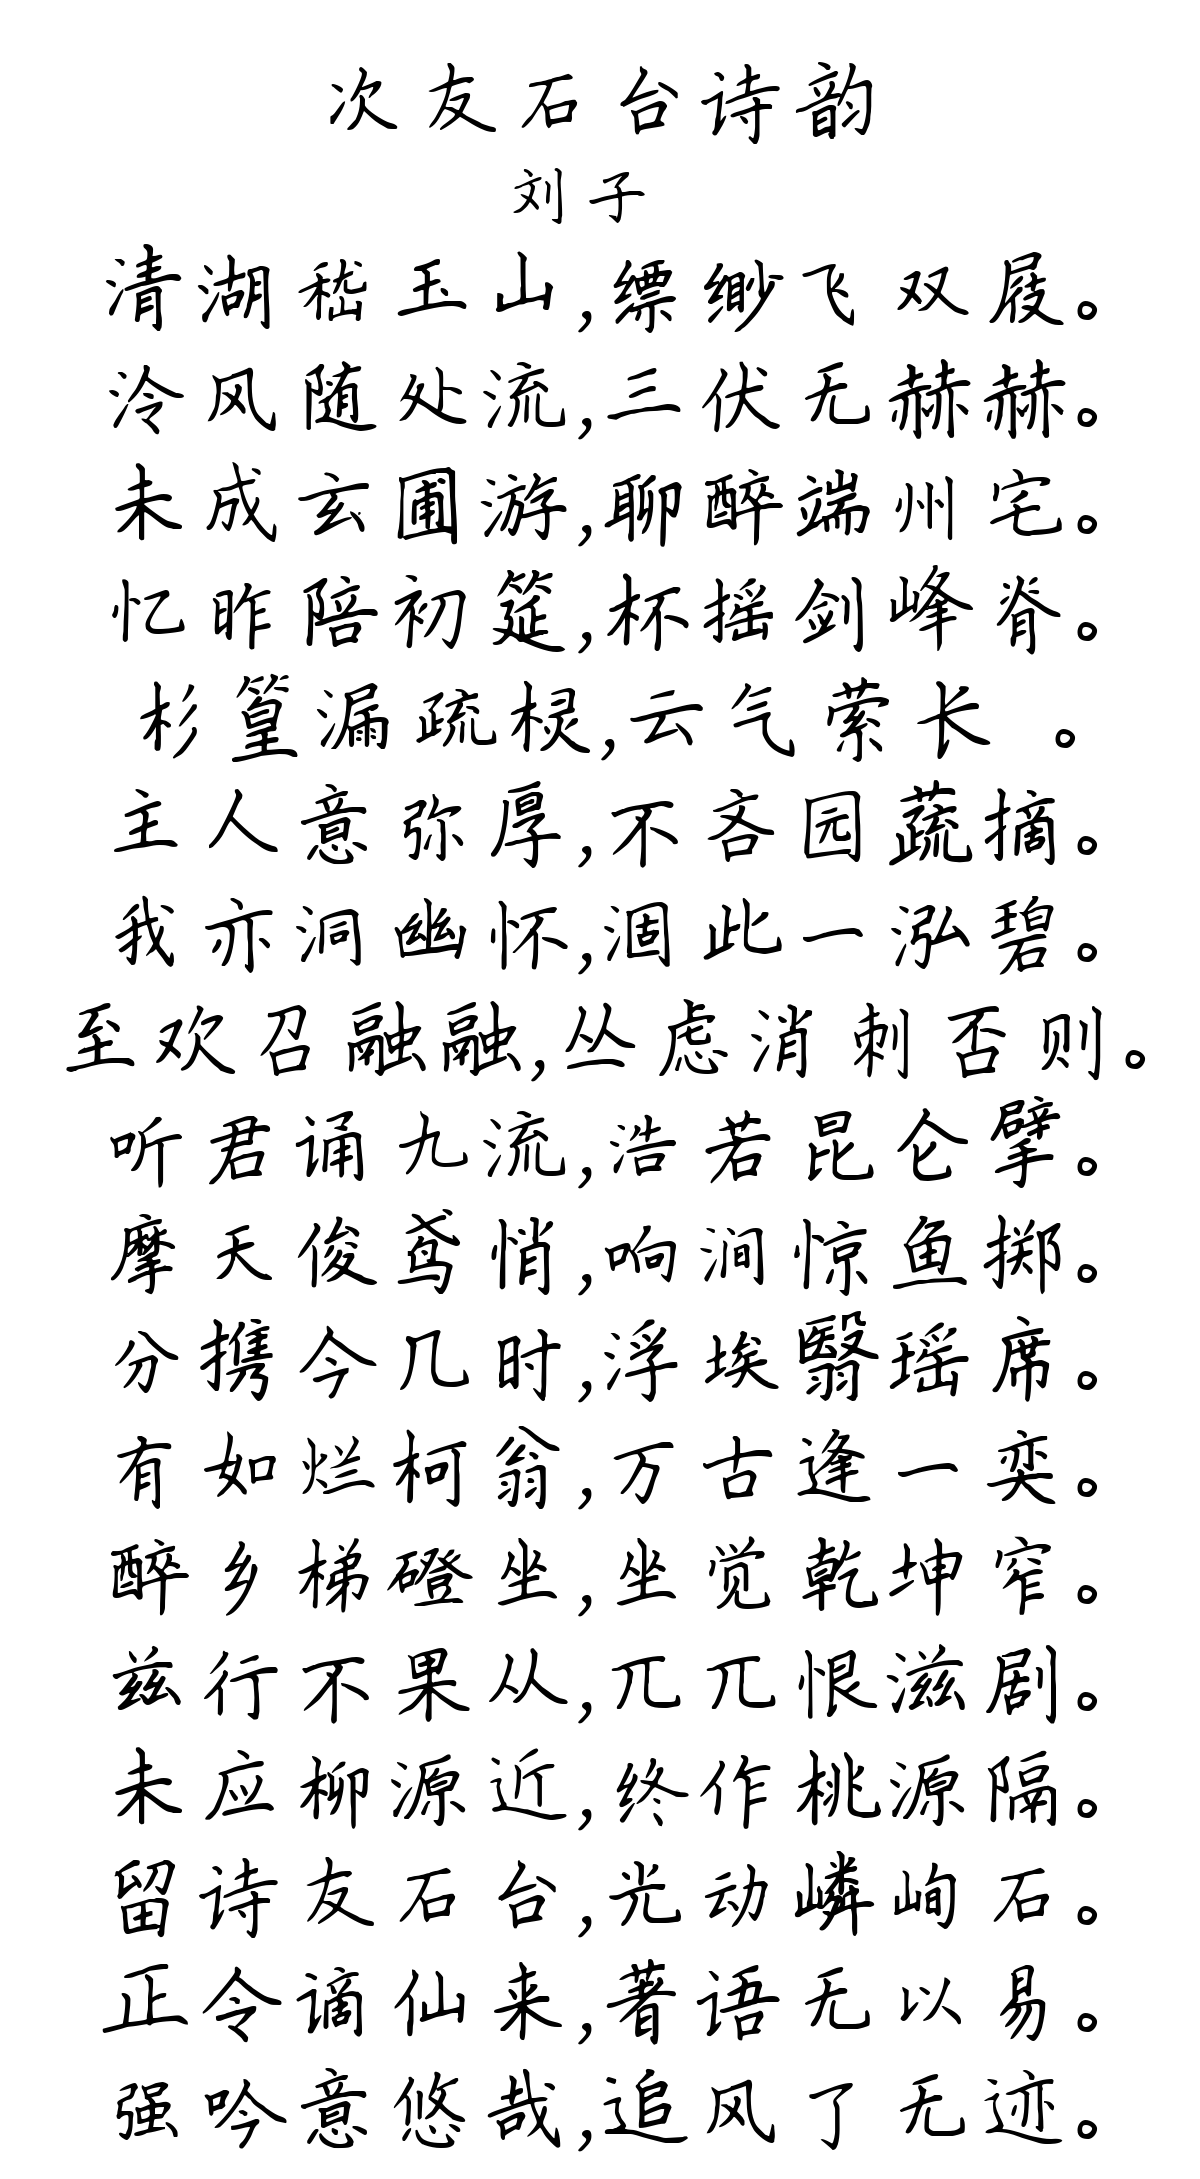 次友石台诗韵
刘子
清湖嵇玉山,缥缈飞双屐。
泠风随处流,三伏无赫赫。
未成玄圃游,聊醉端州宅。
忆昨陪初筵,杯摇剑峰脊。
杉篁漏疏棂,云气萦长 。
主人意弥厚,不吝园蔬摘。
我亦洞幽怀,涸此一泓碧。
至欢召融融,丛虑消刺否则。
听君诵九流,浩若昆仑擘。
摩天俊鸢悄,响涧惊鱼掷。
分携今几时,浮埃翳瑶席。
有如烂柯翁,万古逢一奕。
醉乡梯磴坐,坐觉乾坤窄。
兹行不果从,兀兀恨滋剧。
未应柳源近,终作桃源隔。
留诗友石台,光动嶙峋石。
正令谪仙来,著语无以易。
强吟意悠哉,追风了无迹。